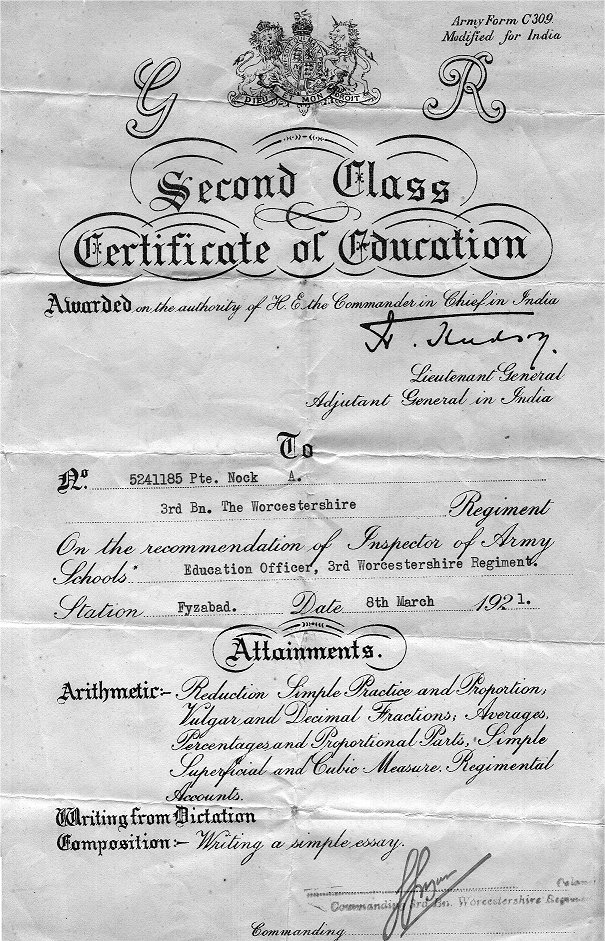 Army Form C 309.
Modified for India
G R
DIEU ET MON DROIT
Second Class
Certificate of Education
Awarded on the authority of H.E. the Commander in Chief in India
H. Hudson.
Lieutenant General
Adjutant General in India
To
No. 5241185 Pte. Nock A.
3rd Bn. The Worcestershire Regiment
On the recommendation of Inspector of Army
Schools" Education Officer, 3rd Worcestershire Regiment.
Station Fyzabad. Date 8th March 1921.
Attainments.
Arithmetic:- Reduction Simple Practice and Proportion,
Vulgar and Decimal Fractions; Averages,
Percentages and Proportional Parts, Simple
Superficial and Cubic Measure. Regimental
Accounts.
Writing from Dictation
Composition:- Writing a simple essay.
Commanding 3rd Bn. Worcestershire Regim
Commanding